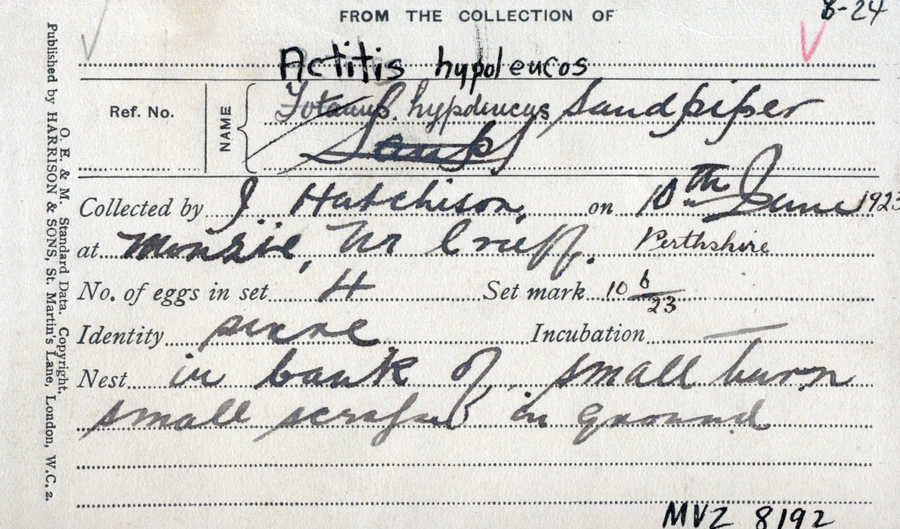 FROM THE COLLECTION OF
8-24
Actitis hypoleucos
Ref. No. NAME Totanus hypoleucus Sandpiper
Collected by J. Hutchison, on 10th June 1923
at Monzie, Nr Crieff. Perthshire
No. of eggs in set 4 Set mark 10 6/23
Identity sure Incubation
Nest in bank of small burn
small scrape in ground
MVZ 8192
O. E. & M. Standard Data. Copyright.
Published by HARRISON & SONS, St. Martin's Lane, London, W.C. 2.